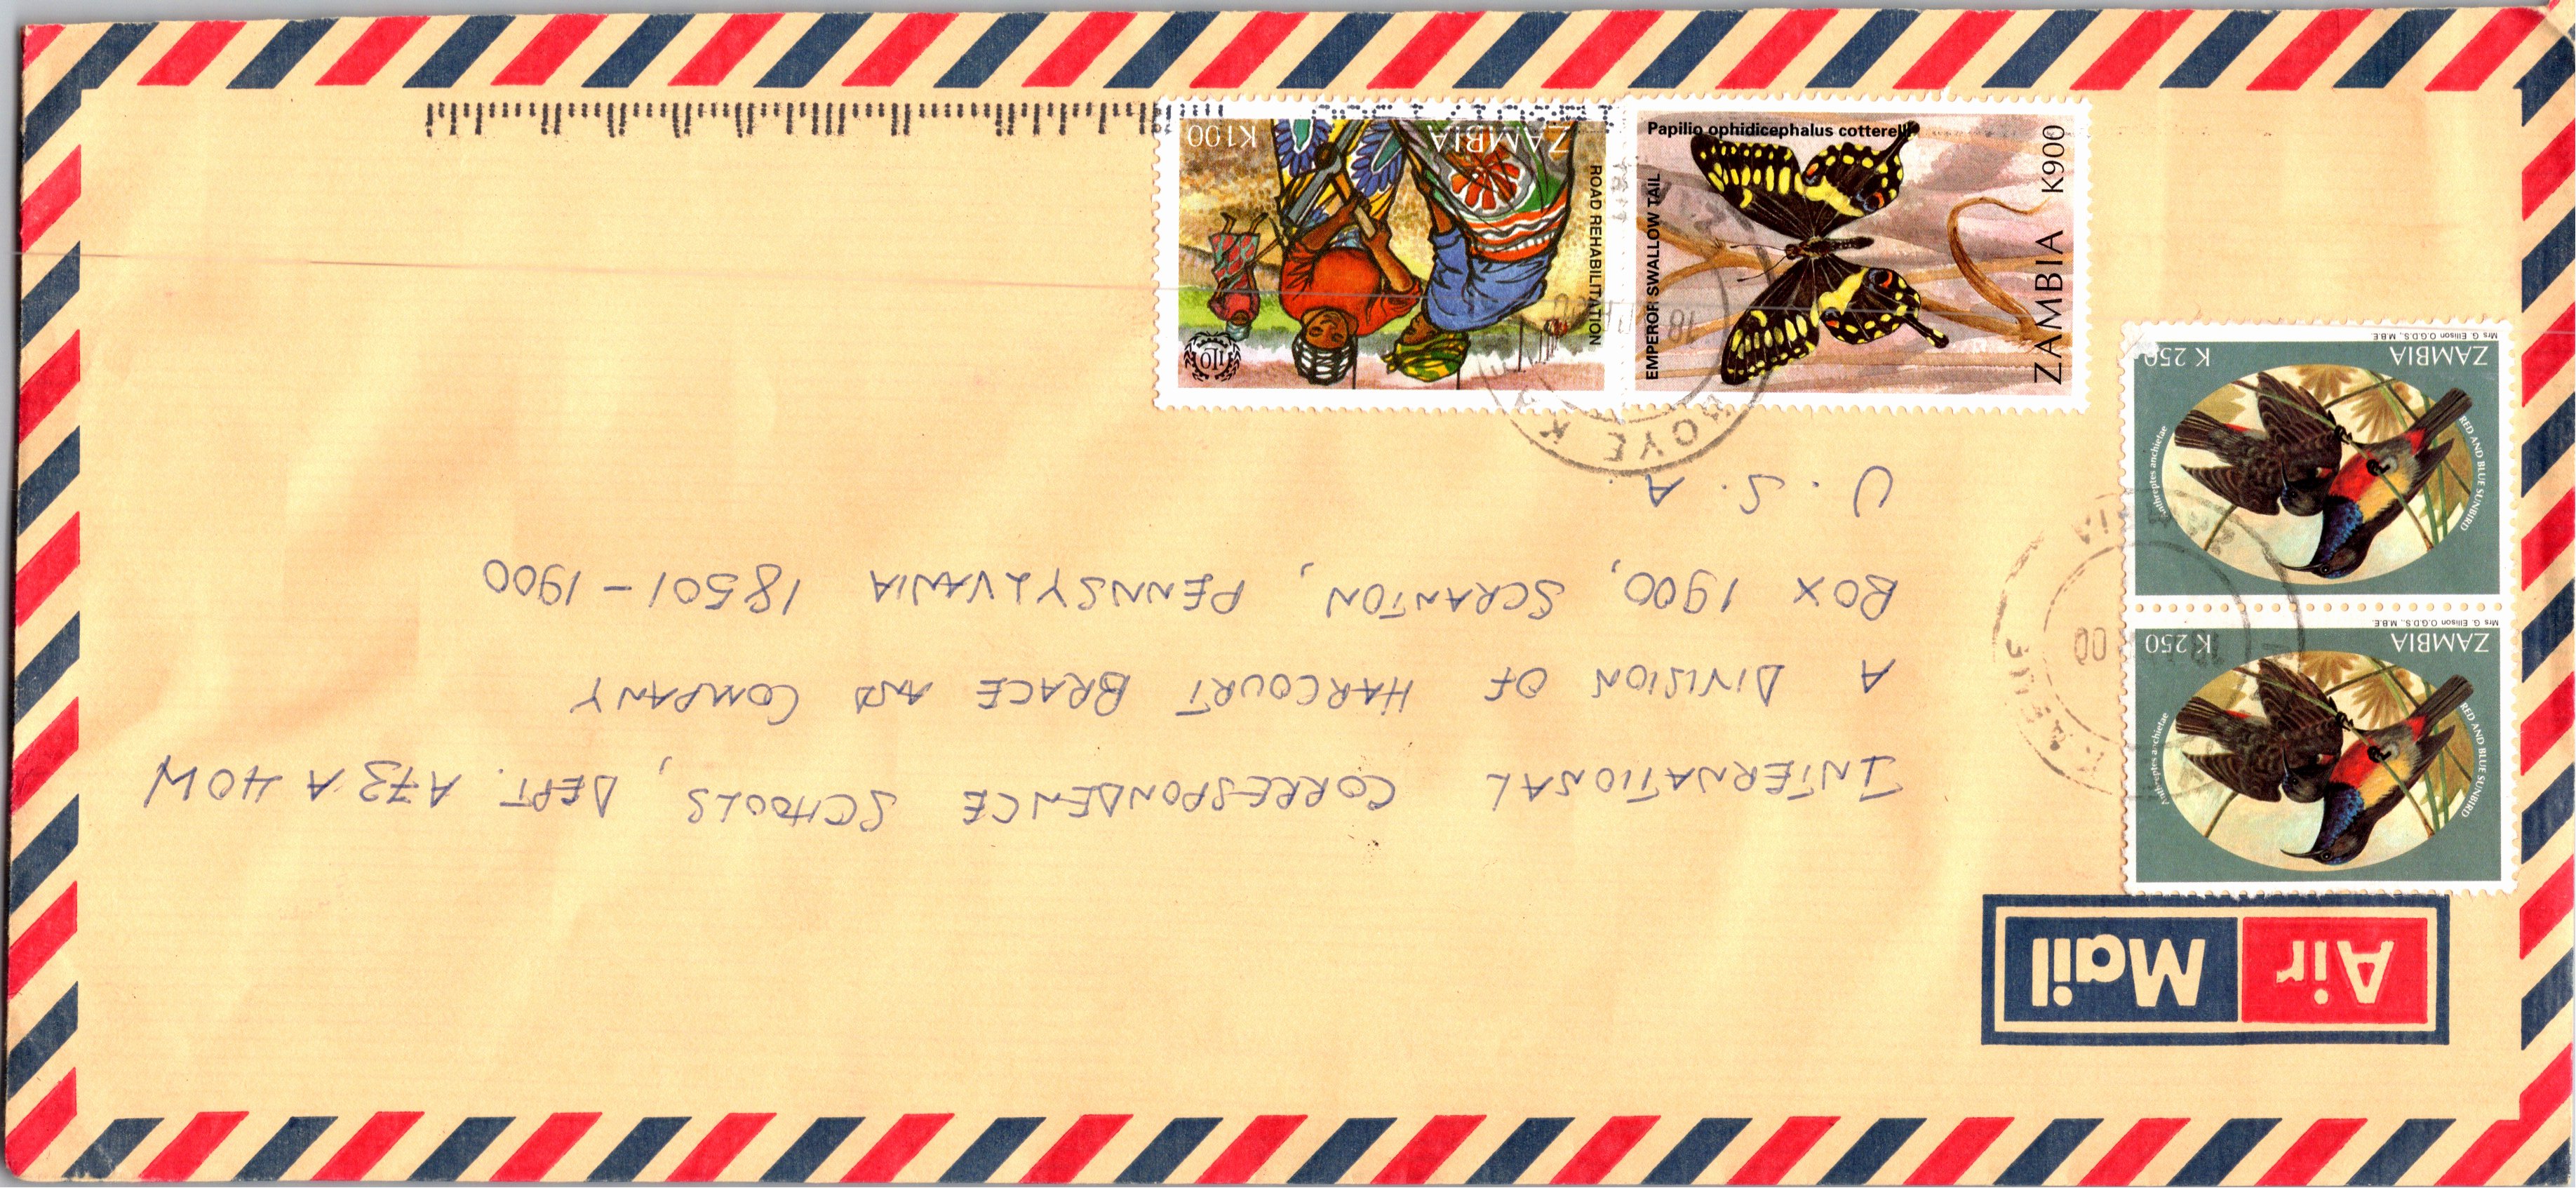 Air Mail
INTERNATIONAL CORRESPONDENCE SCHOOLS, DEPT. A73A40W
A DIVISION OF HARCOURT BRACE AND COMPANY
BOX 1900, SCRANTON, PENNSYLVANIA 18501-1900
U.S.A.
ZAMBIA K250
RED AND BLUE SUNBIRD
Anthreptes anchietae
Mrs G. Ellison O.G.D.S., M.B.E.
ZAMBIA K250
RED AND BLUE SUNBIRD
Anthreptes anchietae
Mrs G. Ellison O.G.D.S., M.B.E.
Papilio ophidicephalus cotterelli
EMPEROR SWALLOW TAIL
ZAMBIA K900
ROAD REHABILITATION
ZAMBIA K100
ILO
18
00
18